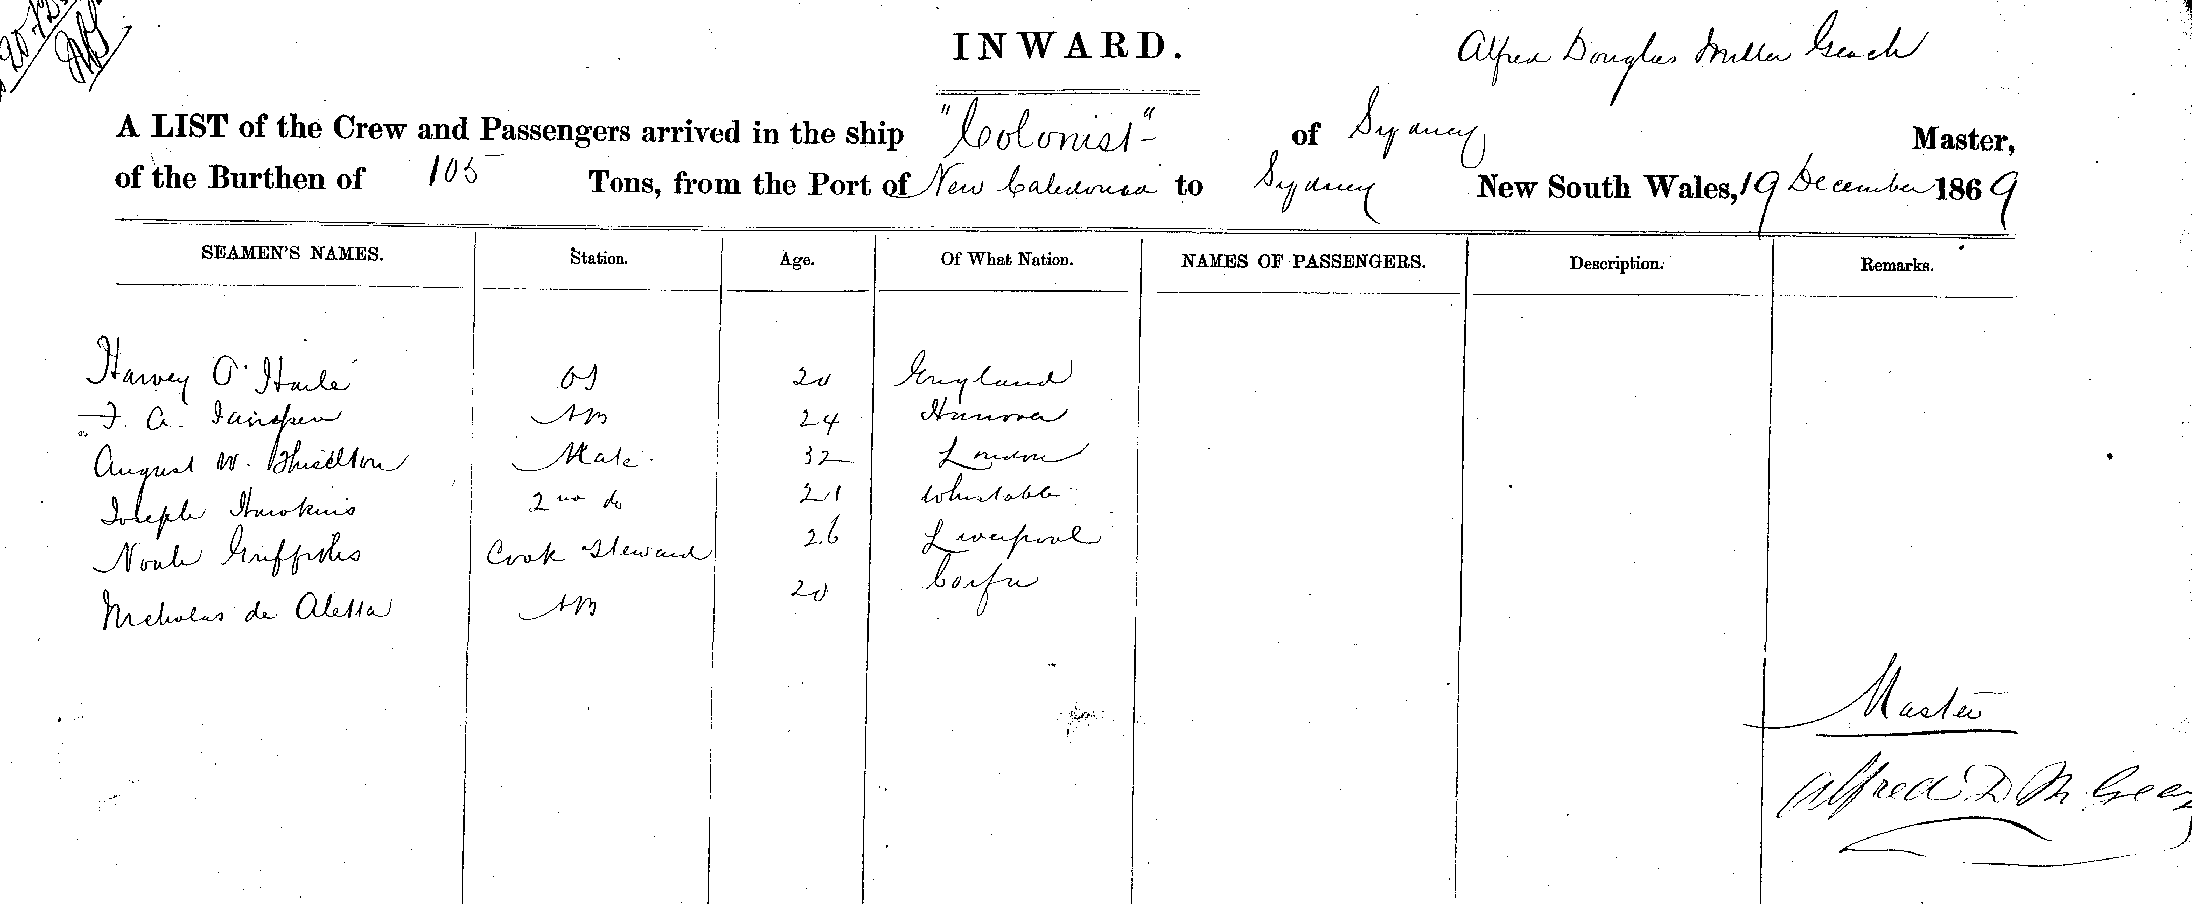 20-12
INWARD.
Alfred Douglas Miller Geach
A LIST of the Crew and Passengers arrived in the ship "Colonist" of Sydney Master,
of the Burthen of 105 Tons, from the Port of New Caledonia to Sydney New South Wales, 19 December 1869
SEAMEN'S NAMES. Station. Age. Of What Nation. NAMES OF PASSENGERS. Description. Remarks.
Harvey O' OS 20 England
F. A. AB 24 Hanover
August W. Thiselton Mate 32 London
Joseph Hawkins 2nd do 21 Whistable
Noah Griffiths Cook Steward 26 Liverpool
Nicholas de Aletta AB 20 Corfu
Master
Alfred D M Geach